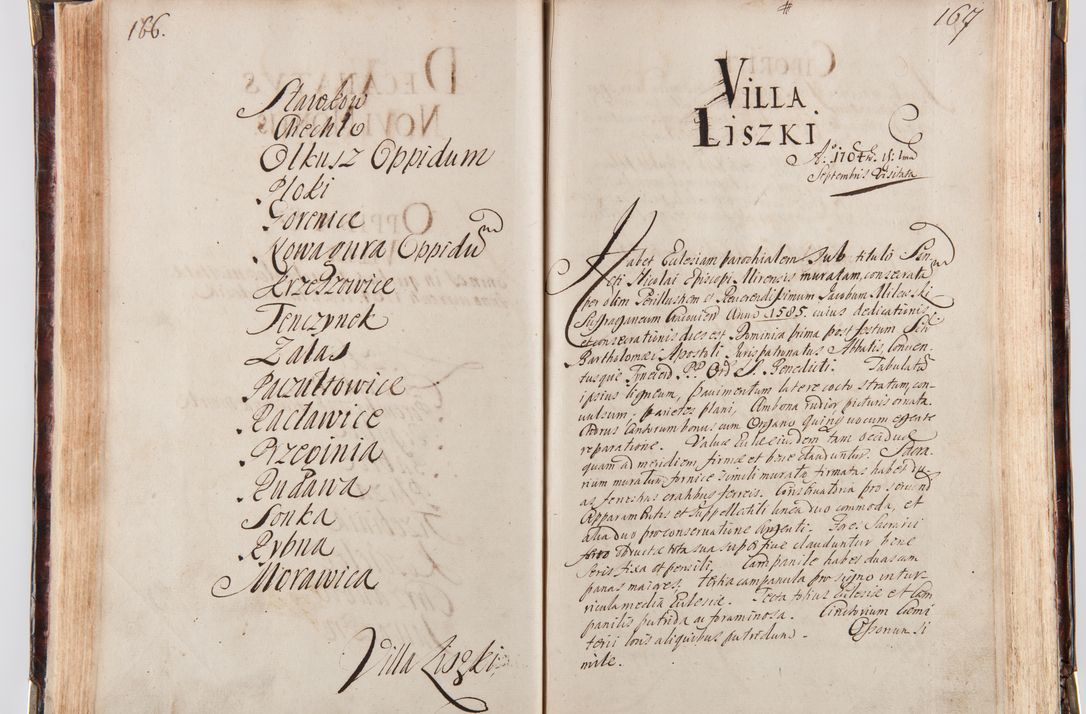 166.
Sławków
Chechło
Olkusz Oppidum
Płoki
Gorenice
Nowagura Oppidum
Krzeszowice
Tenczynek
Zalas
Paczułtowice
Racławice
Przeginia
Rudawa
Sonka
Rybna
Morawica
Villa Liszki
167
VILLA
LISZKI.
Aº 1704tº is: 1ma
Septembris Visitata
Habet Eclesiam parochialem Sub titulo San
cti Nicolai Episcopi Mirensis muratam, consecratã
per olim Perillustrem et Reverendissimum Jacobum Milewski
Suffraganeum Cracovien Anno 1585. cuius dedicationis
et consecrationis dies est Dominica prima post festum Scti
Bartholomæi Apostoli Juris patronatus Abbatis, Conven-
tusque Tynecen PP Ord S. Benedicti. Tabulatũ
ipsius ligneum, pavimentum latere cocto stratum, con-
vulsum; parietes plani, Ambona rudior picturis ornata
Chorus Cantorum bonus cum Organo quinq vocum egente
reparatione. Valvæ Eclesiæ eiusdem tam occiduæ
quam ad meridiem, firmæ et bene clauduntur. Sacra
rium muratum fornice simili murata firmatas habet du-
as fenestras cratibus ferreis. Conservatoria pro serico
Apparamentis et suppellectili linea duo commoda, et
alia duo pro conservatione Argenti. Fores Sacrarii
ferro obductæ tota sua superficie clauduntur bene
seris fixa et pensili. Campanile habet duas cam
panas maiores, tertia campanula pro signo in tur-
ricula media Eclesiæ. Tecta totius Eclesiæ et Cam
panilis putrida ac foraminosa. Cinctorium Cœmi
terii locis aliquibus putredum. Ossorium si
mile.